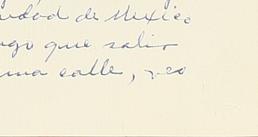 udad de Mexico
ngo que salir
una calle,